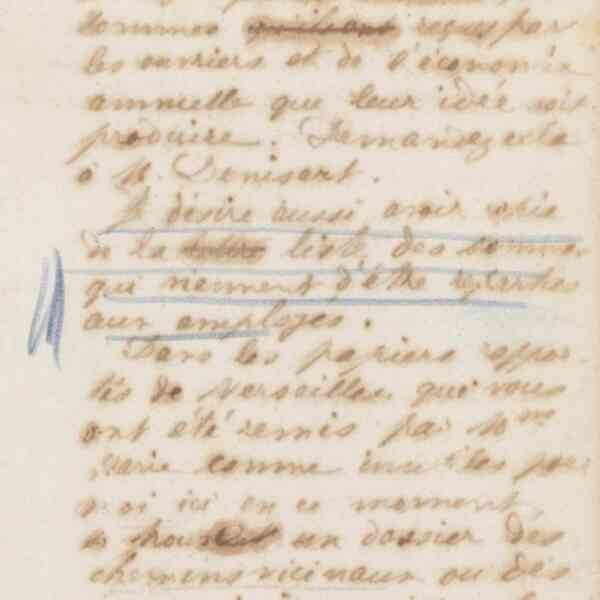 sommes reçues par
les ouvriers et de l'économie
annuelle que leur idée soit
produire. Demandez cela
à M. Denisart.
Je désire aussi avoir
de la liste des sommes
qui viennent d'être réparties
aux employés.
Dans les papiers rappor-
tés de Versailles, qui vous
ont été remis par Mme
Marie comme inutiles pour
moi ici en ce moment,
se trouve un dossier des
chemins vicinaux ou des